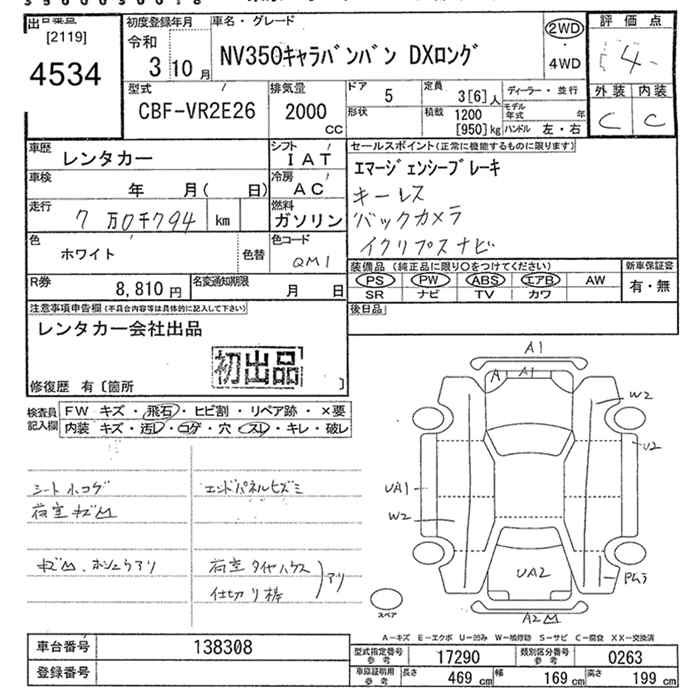 出品番号
[2119]
4534
初度登録年月
令和
3 10 月
車名・グレード
NV350キャラバンバン DXロング
2WD
4WD
評価点
4
外装 内装
C C
型式
CBF-VR2E26
排気量
2000
cc
ドア
5
形状
定員
3[6] 人
積載 1200
[950] kg
ディーラー・並行
モデル年式 年
ハンドル 左・右
車歴
レンタカー
シフト
IAT
車検
年 月( 日)
冷房
AC
走行
7万0千794 km
燃料
ガソリン
色
ホワイト
色替
色コード
QM1
R券
8,810 円
名変通知期限
月 日
セールスポイント(正常に機能するものに限ります)
エマージェンシーブレーキ
キーレス
バックカメラ
イクリプスナビ
装備品(純正品に限り○をつけてください)
PS PW ABS エアB AW
SR ナビ TV カワ
新車保証書
有・無
後日品
注意事項申告欄(不具合内容等は具体的に記入して下さい)
レンタカー会社出品
初出品
修復歴 有〔箇所 〕
検査員記入欄
FW キズ・飛石・ヒビ割・リペア跡・×要
内装 キズ・汚レ・コゲ・穴・スレ・キレ・破レ
シートホコゲ
エンドパネルヒズミ
荷室キズ凹
キズ凹、ホシュウアリ
荷室タイヤハウス
仕切り棒
アリ
A1
A
A1
W2
U2
UA1
W2
UA2
A2凹
スペア
A－キズ E－エクボ U－凹み W－補修跡 S－サビ C－腐食 XX－交換済
車台番号
138308
登録番号
型式指定番号
参考
17290
類別区分番号
参考
0263
車庫証明用
参考
長さ 469 cm
幅 169 cm
高さ 199 cm